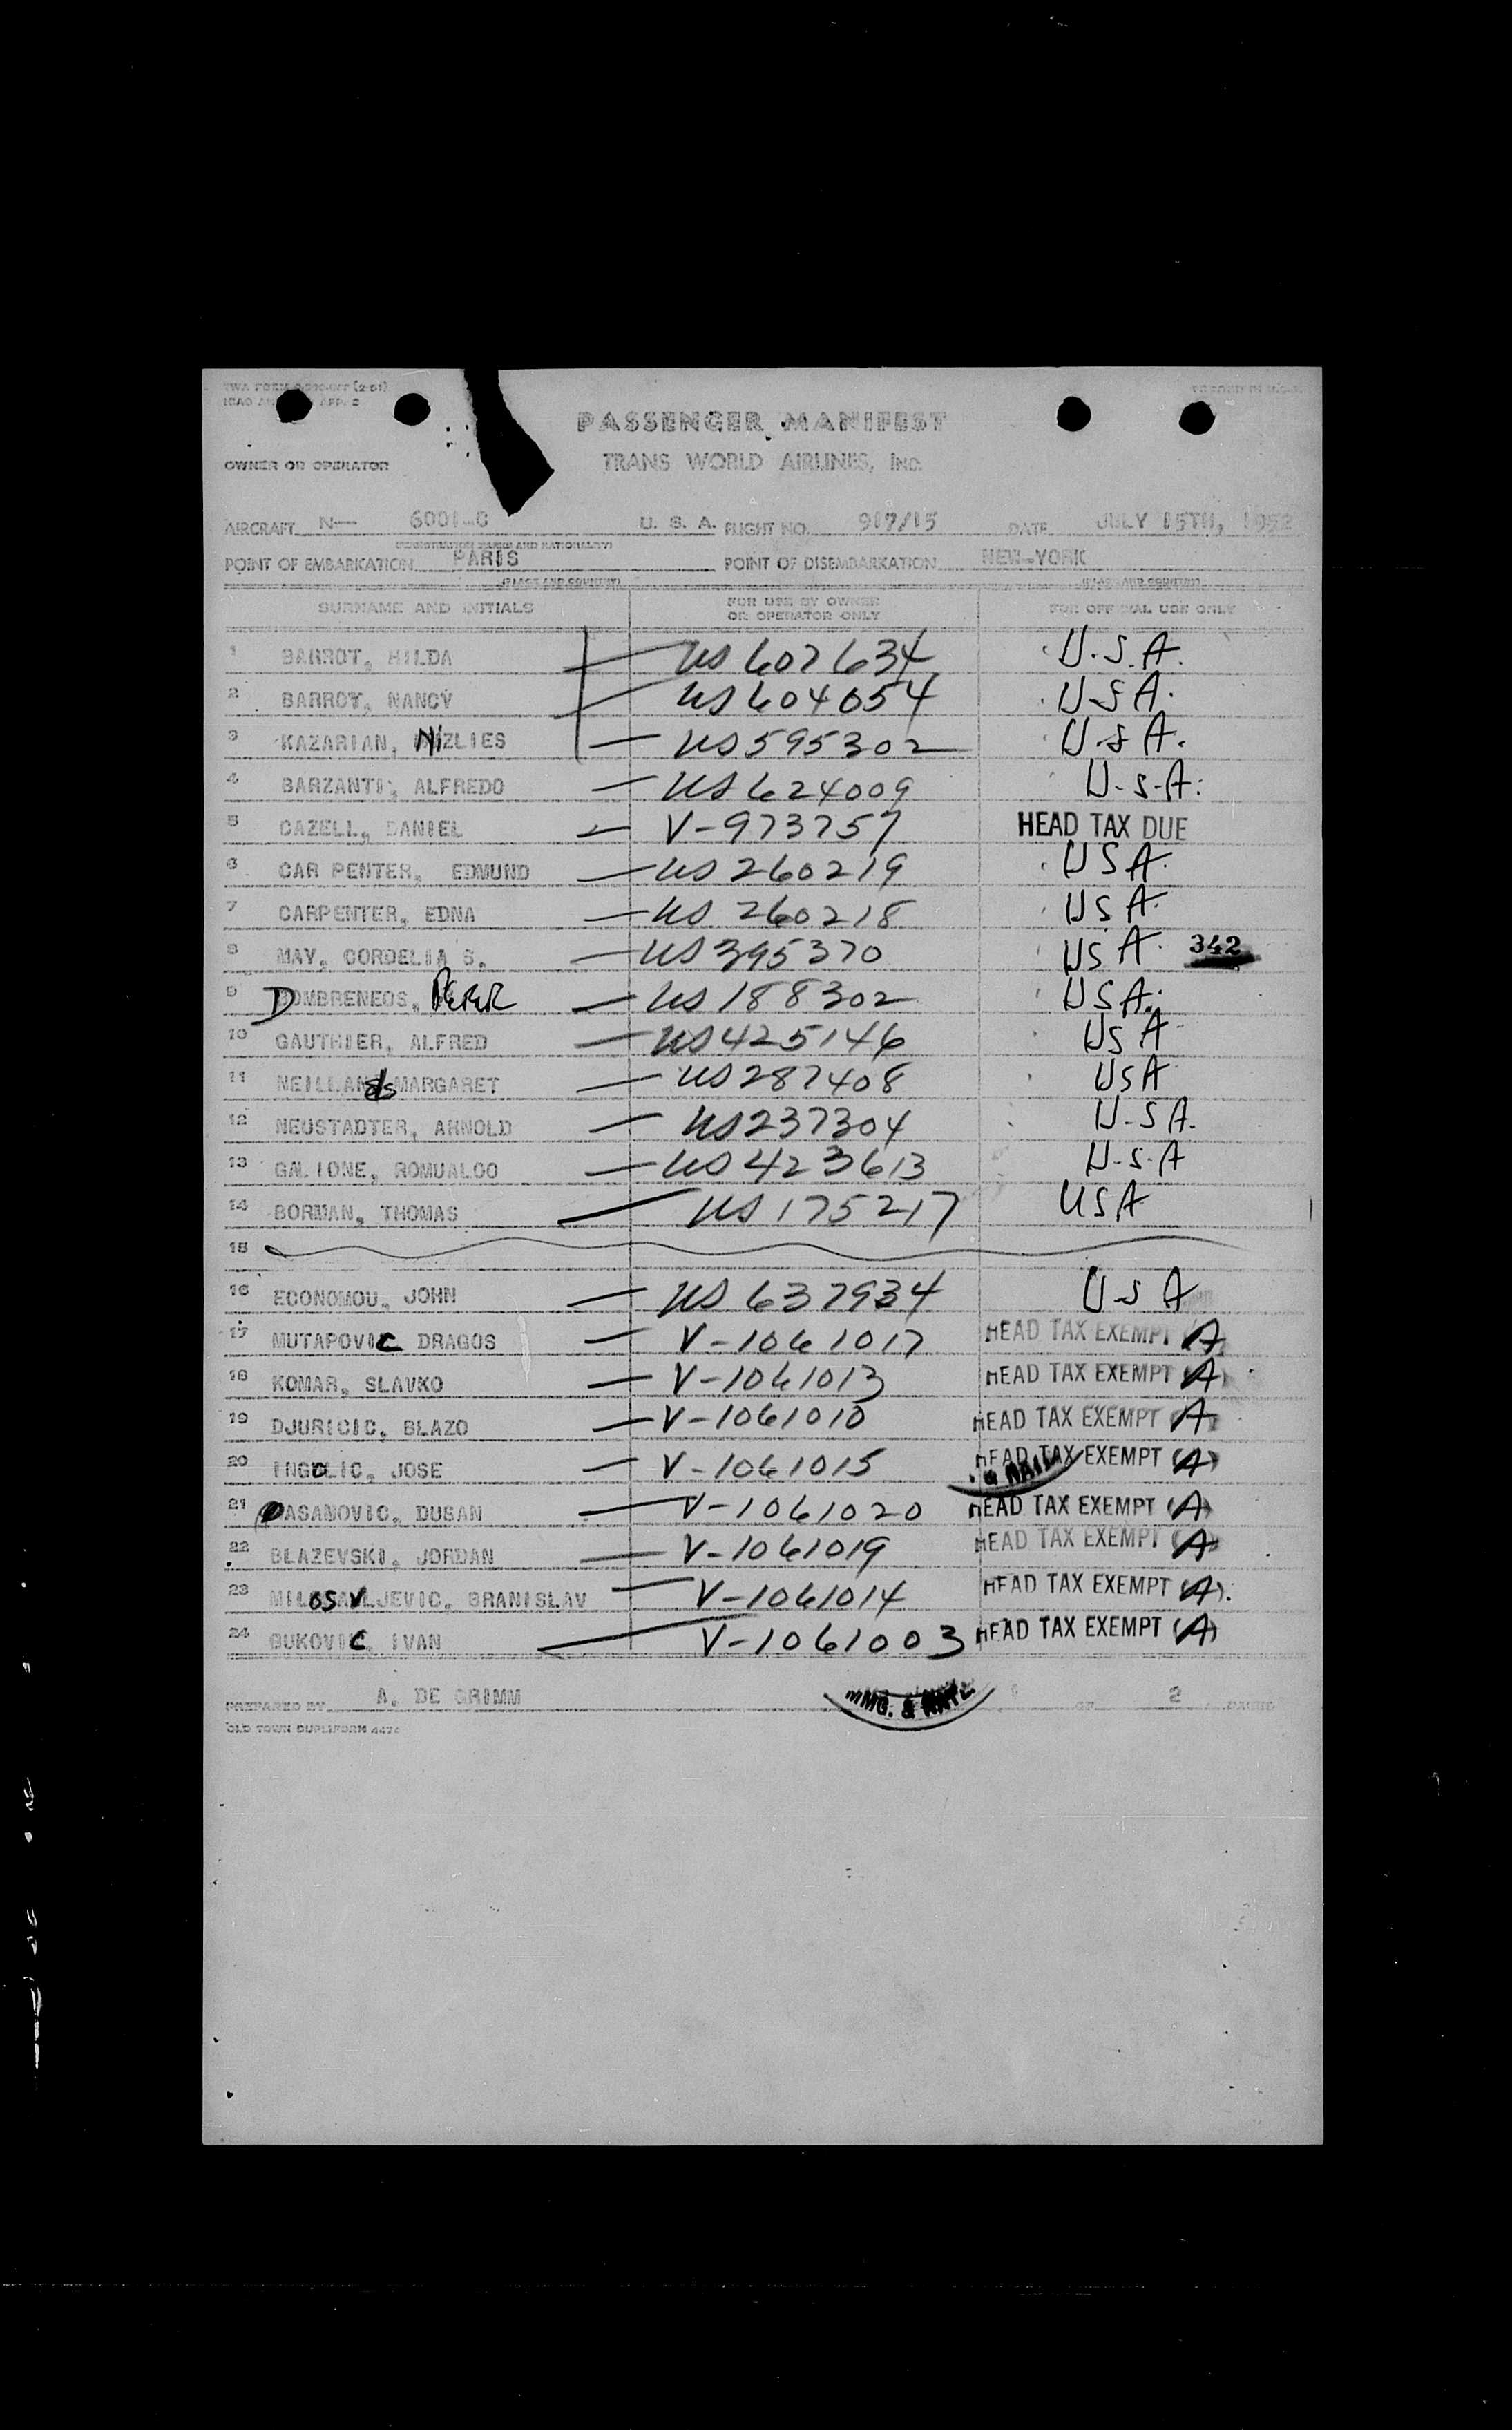 PASSENGER MANIFEST
OWNER OR OPERATOR TRANS WORLD AIRLINES, INC.
AIRCRAFT N— 6001-C U. S. A. FLIGHT NO. 917/15 DATE JULY 15TH, 1952
(REGISTRATION MARKS AND NATIONALITY)
POINT OF EMBARKATION PARIS POINT OF DISEMBARKATION NEW-YORK
(PLACE AND COUNTRY) (PLACE AND COUNTRY)
SURNAME AND INITIALS FOR USE BY OWNER OR OPERATOR ONLY FOR OFFICIAL USE ONLY
1 BARROT, HILDA — US 607634 U.S.A.
2 BARROT, NANCY — US 604054 U-S A.
3 KAZARIAN, NiZLIES — US 595302 U.S A.
4 BARZANTI, ALFREDO — US 624009 U-S-A.
5 CAZELL, DANIEL — V-973757 HEAD TAX DUE
6 CAR PENTER, EDMUND — US 260219 USA.
7 CARPENTER, EDNA — US 260218 USA.
8 MAY, CORDELIA S. — US 395370 USA. 342
9 DOMBRENEOS, PETER — US 188302 USA.
10 GAUTHIER, ALFRED — US 425146 USA
11 NEILLANds MARGARET — US 287408 USA
12 NEUSTADTER, ARNOLD — US 237304 U-SA.
13 GALIONE, ROMUALDO — US 423613 U-S-A
14 BORMAN, THOMAS — US 175217 USA
15
16 ECONOMOU, JOHN — US 637934 U-S A
17 MUTAPOVIC DRAGOS — V-1061017 HEAD TAX EXEMPT (A)
18 KOMAR, SLAVKO — V-1061013 HEAD TAX EXEMPT (A)
19 DJURICIC, BLAZO — V-1061010 HEAD TAX EXEMPT (A)
20 INGOLIC, JOSE — V-1061015 HEAD TAX EXEMPT (A)
21 PASANOVIC, DUSAN — V-1061020 HEAD TAX EXEMPT (A)
22 BLAZEVSKI, JORDAN — V-1061019 HEAD TAX EXEMPT (A)
23 MILOSAVLJEVIC, BRANISLAV — V-1061014 HEAD TAX EXEMPT (A)
24 BUKOVIC, IVAN — V-1061003 HEAD TAX EXEMPT (A)
PREPARED BY A. DE GRIMM IMMG. & NATZ. 1 OF 2 PAGES
OLD TOWN DUPLIFORM 4474